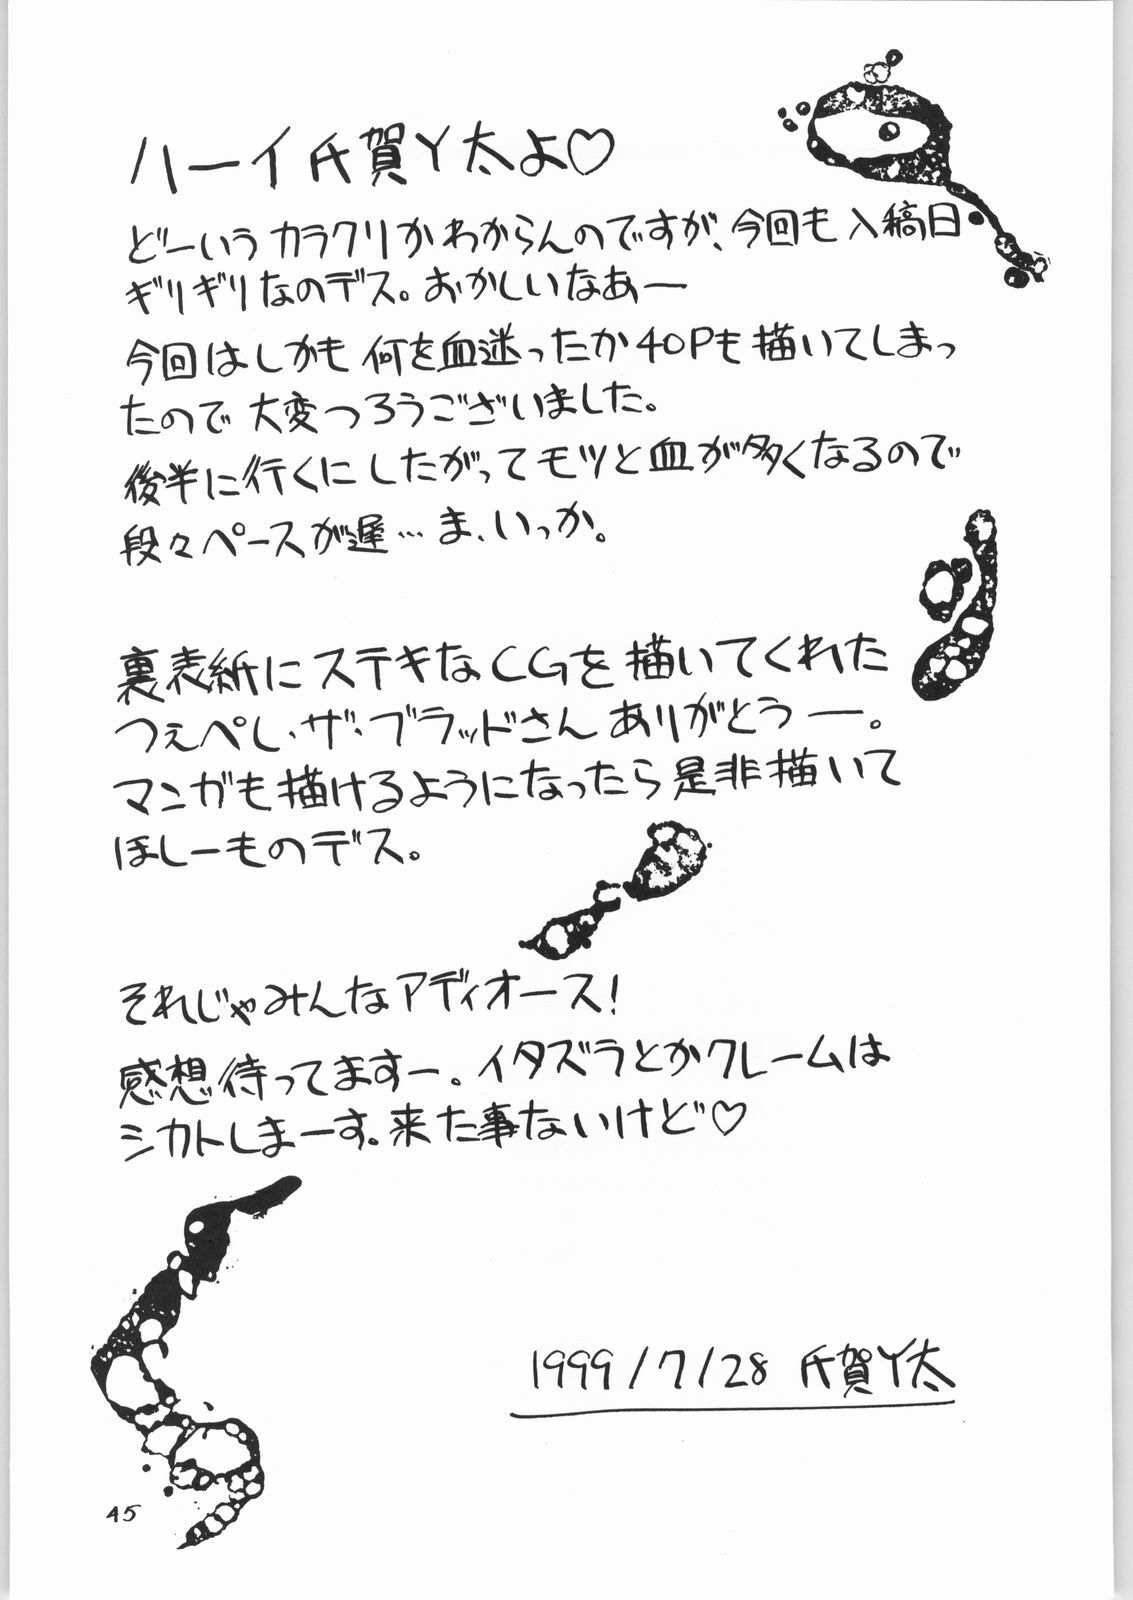 ハーイ氏賀Y太よ♡
どーいうカラクリかわからんのですが、今回も入稿日
ギリギリなのデス。おかしいなあー
今回はしかも何を血迷ったか40Pも描いてしまっ
たので大変つろうございました。
後半に行くにしたがってモツと血が多くなるので
段々ペースが遅…ま、いっか。
裏表紙にステキなCGを描いてくれた
つぇペし・ザ・ブラッドさんありがとうー。
マンガも描けるようになったら是非描いて
ほしーものデス。
それじゃみんなアディオース!
感想待ってますー。イタズラとかクレームは
シカトしまーす。来た事ないけど♡
1999/7/28 氏賀Y太
45